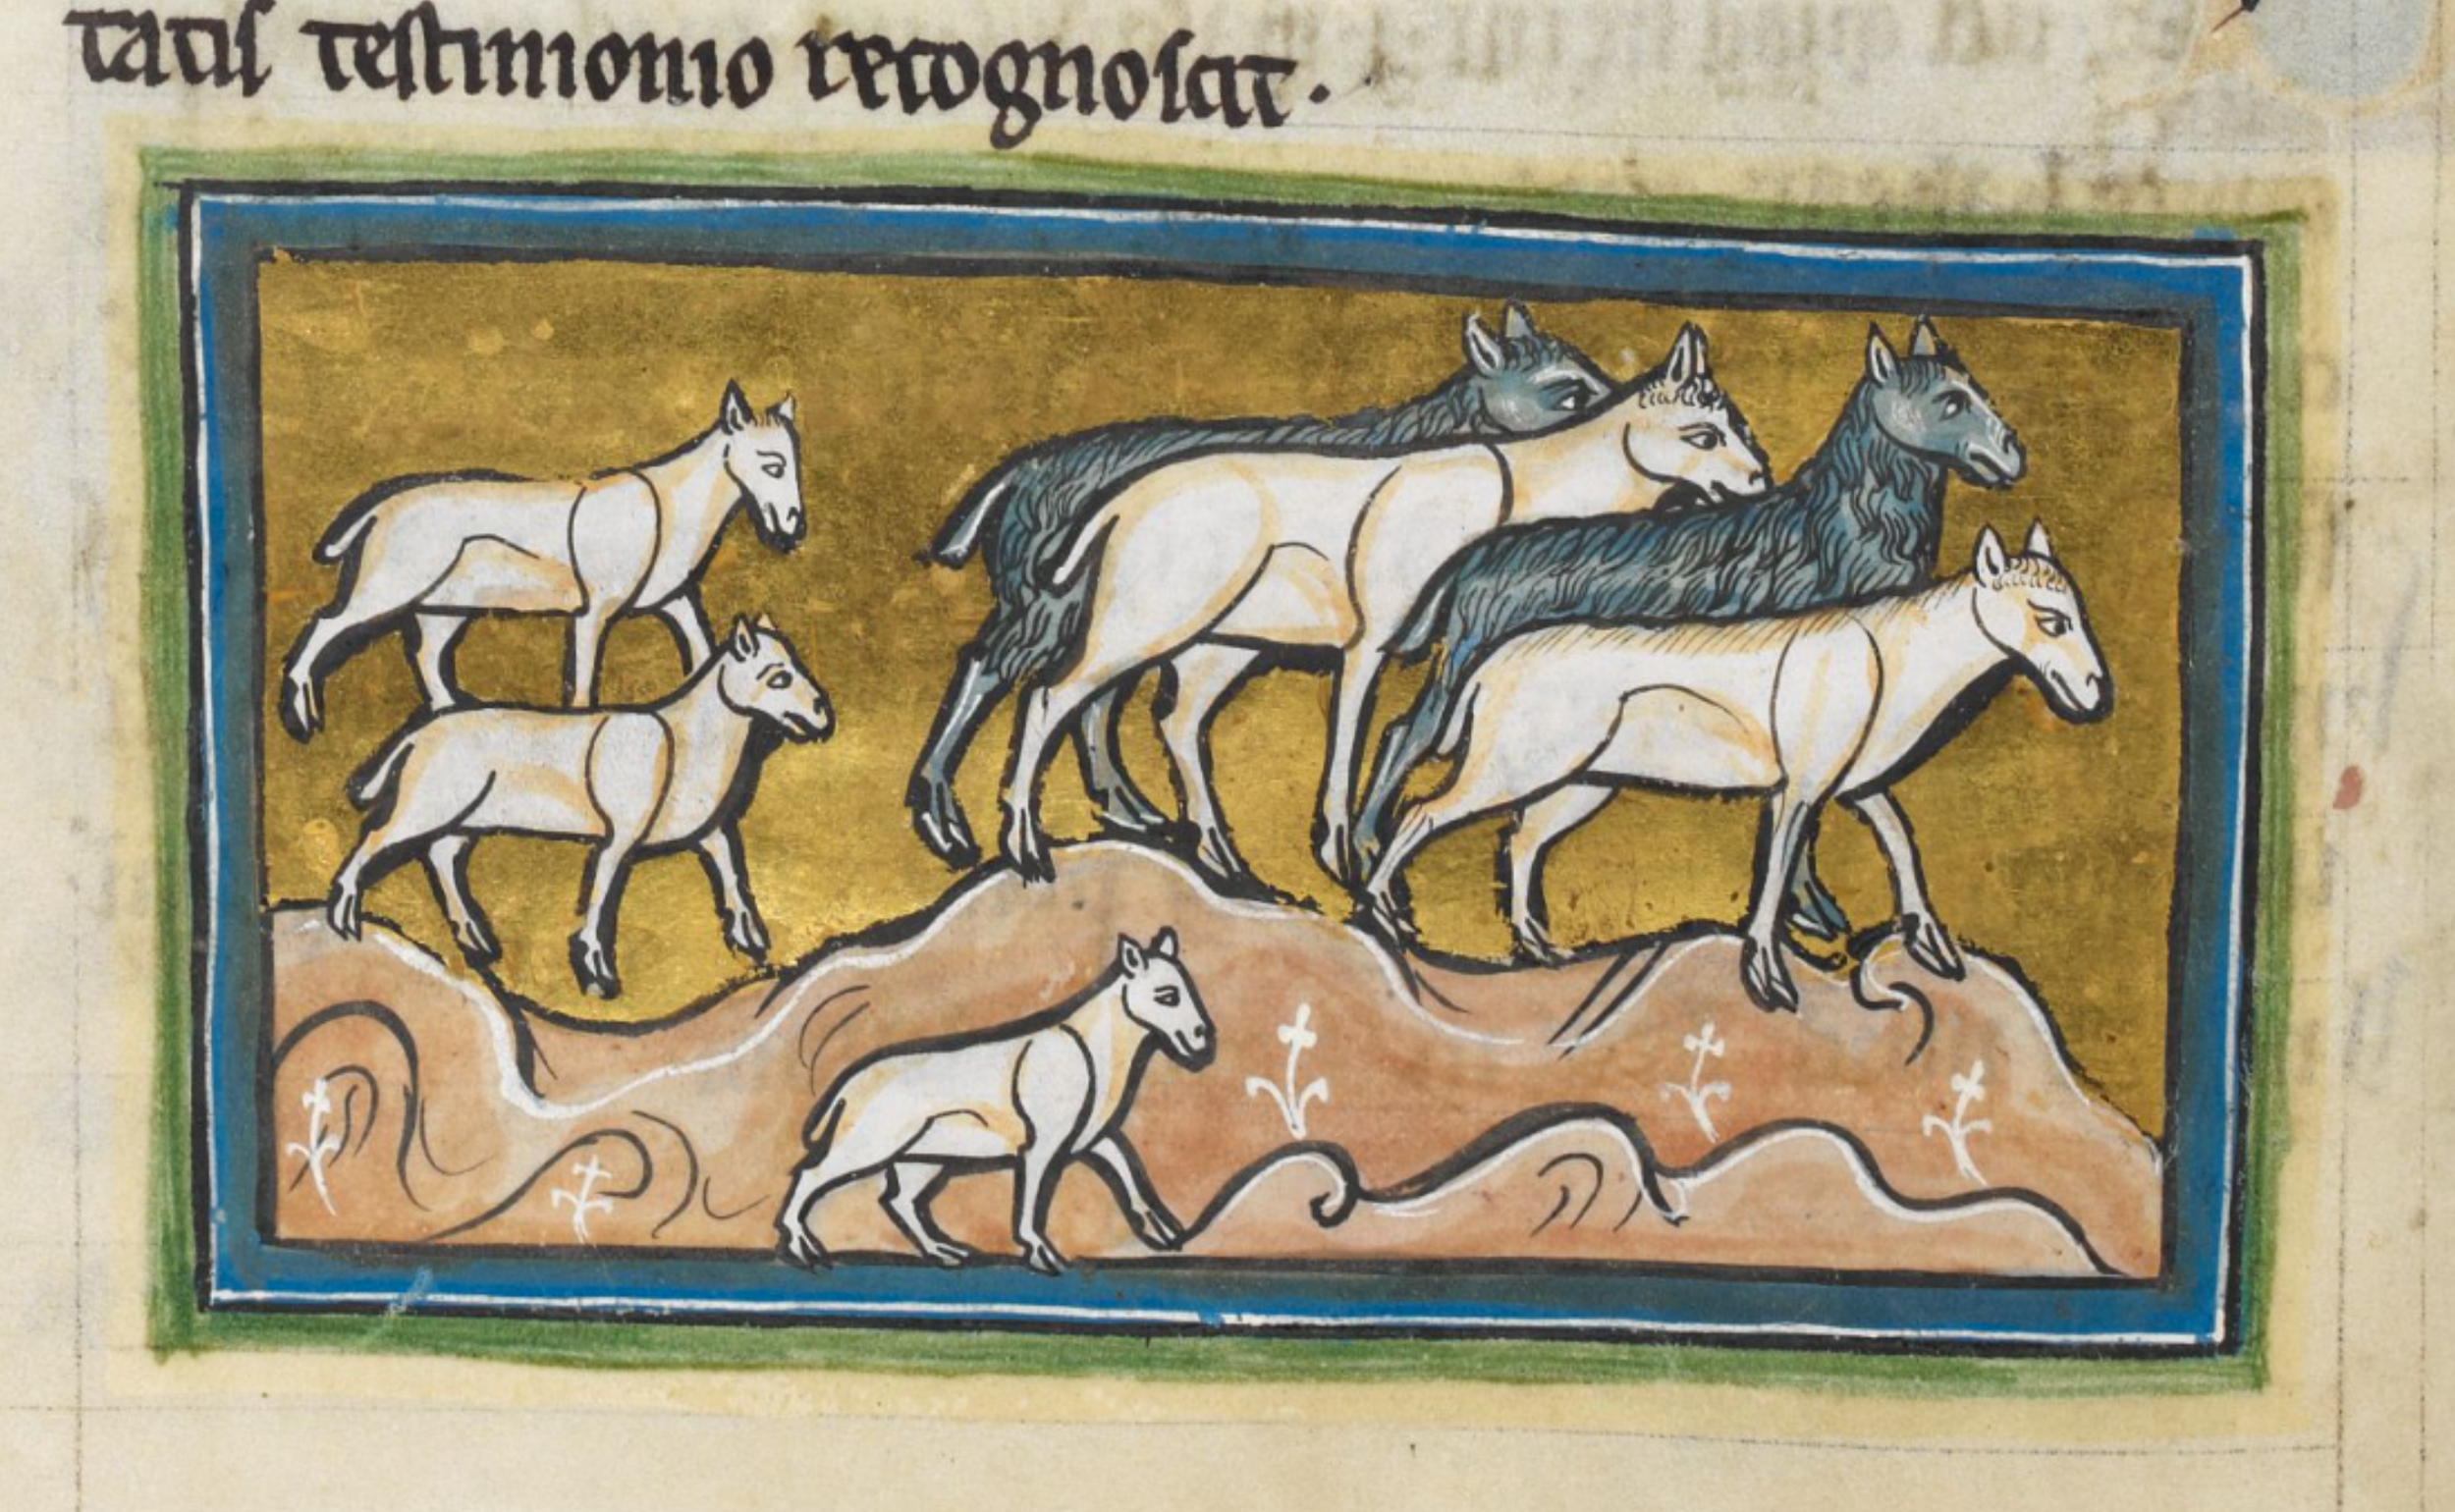 tatis testimonio recognoscit.